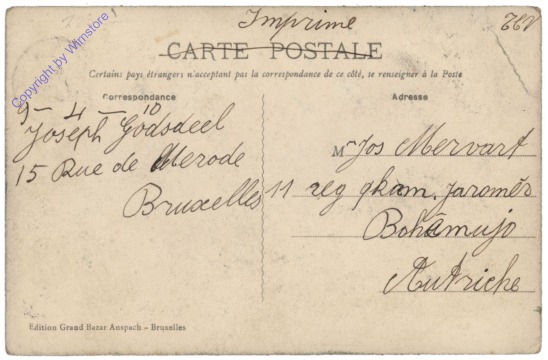 Imprimé
CARTE POSTALE
Certains pays étrangers n'acceptent pas la correspondance de ce côté, se renseigner à la Poste
Correspondance
Adresse
9 - 4 - 10
Joseph Godsdeel
15 Rue de Merode
Bruxelles
M Jos Mervart
11 reg
Jaroměř
Autriche
Edition Grand Bazar Anspach – Bruxelles
Copyright by Wimstore